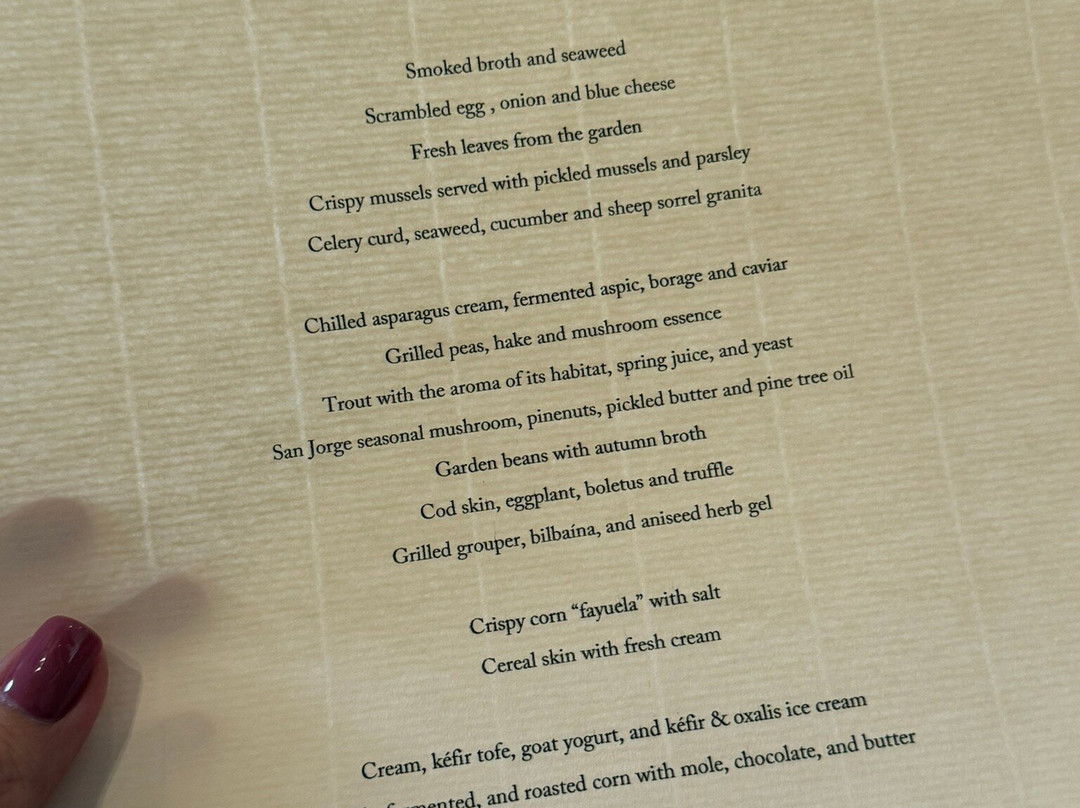 Smoked broth and seaweed
Scrambled egg , onion and blue cheese
Fresh leaves from the garden
Crispy mussels served with pickled mussels and parsley
Celery curd, seaweed, cucumber and sheep sorrel granita
Chilled asparagus cream, fermented aspic, borage and caviar
Grilled peas, hake and mushroom essence
Trout with the aroma of its habitat, spring juice, and yeast
San Jorge seasonal mushroom, pinenuts, pickled butter and pine tree oil
Garden beans with autumn broth
Cod skin, eggplant, boletus and truffle
Grilled grouper, bilbaína, and aniseed herb gel
Crispy corn “fayuela” with salt
Cereal skin with fresh cream
Cream, kéfir tofe, goat yogurt, and kéfir & oxalis ice cream
and roasted corn with mole, chocolate, and butter